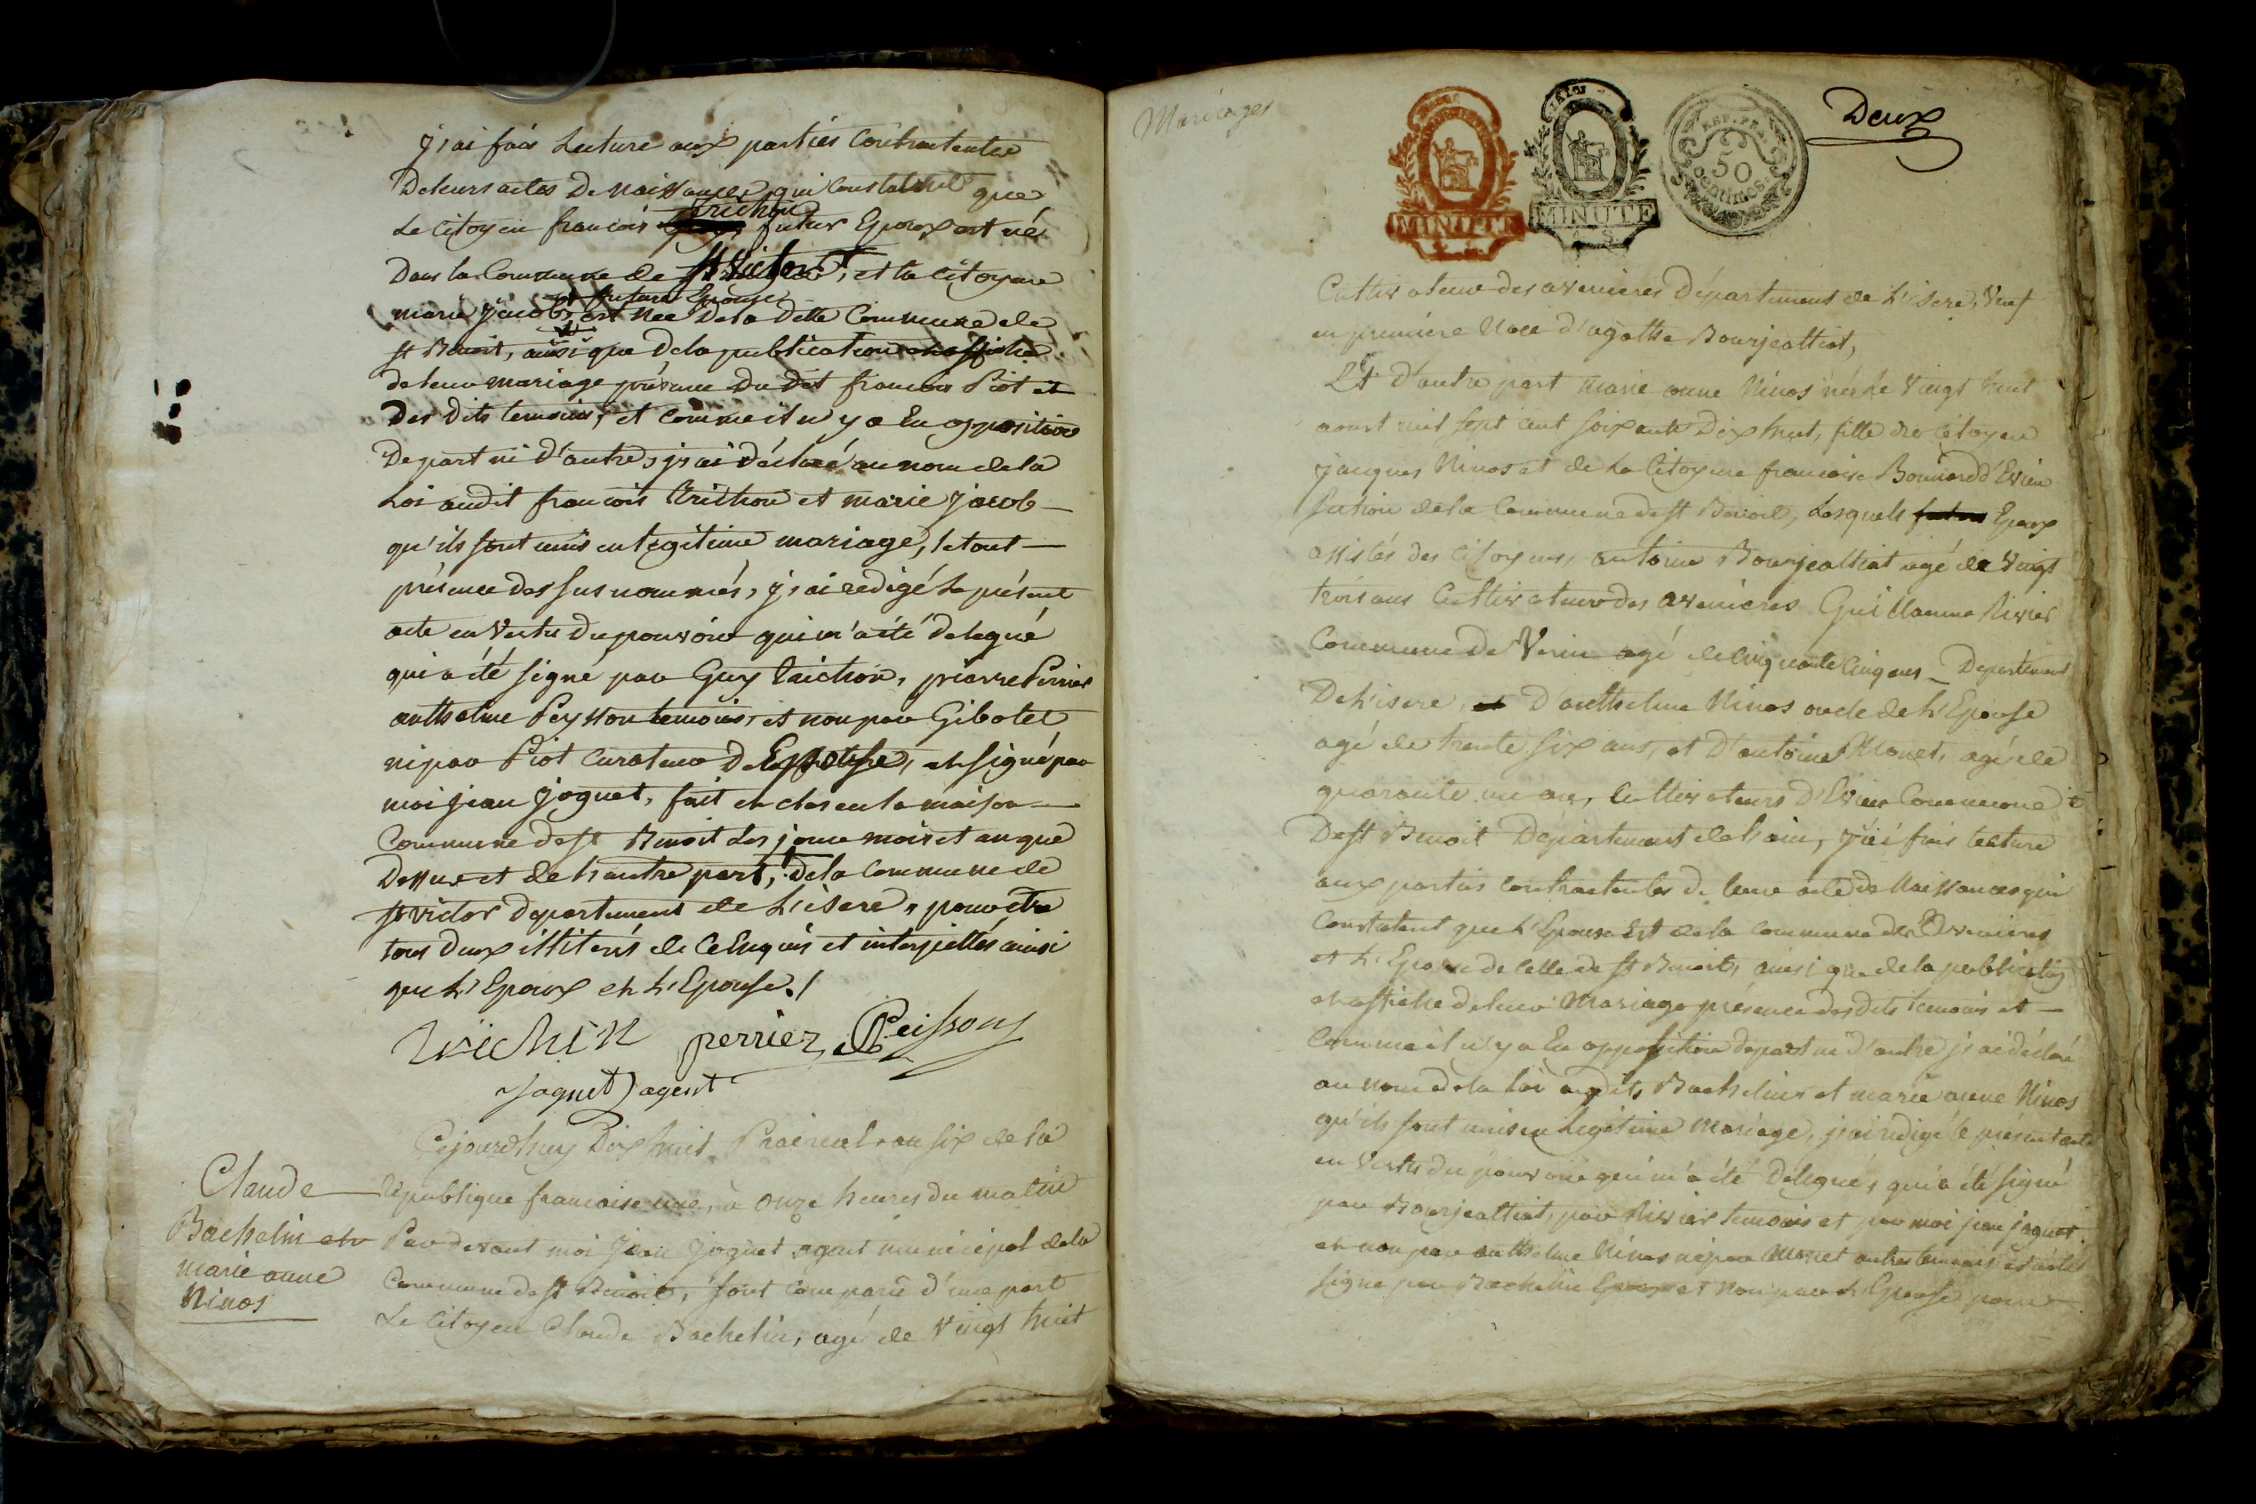 j'ai fais Lecture aux parties Contractentes
De leurs actes De Naissances, qui Constatent que
Le Citoyen francois trichon futur Epoux est né
Dans la Commune de St Victor, et la Citoyene
marie Jacob, future Epouse, est Née De la ditte Commune de
st Benoit, ainsi que De la publication et affiche
de leur mariage présence Du Dit francois Piot et
Des Dits temoins, et comme il n'y a Eu opposition
De part ni D'autre, j'ai déclaré au nom de la
Loi audit francois trichon et marie Jacob
qu'ils sont unis en legitime mariage, le tout
présence des sus nommés, j'ai redigé le présent
acte en Vertu Du pouvoir qui m'a été délegué
qui a été signé par Guy trichon, pierre Perrier
anthelme Peysson temoins, et non par Gibolet
ni par Piot Curateur De Epouse, et signé par
moi jean joguet, fait et clos en la maison
Commune de St Benoit Les jour mois et an que
Dessus et de l'autre part, de la Commune de
st victor departement de L'isere, pour etre
tous Deux illiterés de Ce Enquis et interpellés ainsi
que L'Epoux et L'Epouse./
trichin perrier Peissony
Joguet agent
Claude
Bachelin et
marie anne
Ninos
Cejourd'huy Dix huit Prairial an six de la
République francaise une, à onze heures du matin
Par devant moi Jean Joguet agent municipal de la
Commune de St Benoit, sont comparu d'une part
Le Citoyen Claude Bachelin, agé de Vingt huit
Mariages
MINUTE
MINUTE
REP. FRA.
50
centimes
Deux
Cultivateur des avenieres Département de L'isere, Veuf
en première Noce d'agathe Bourjealliat,
Et D'autre part Marie anne Ninos née le Vingt huit
aoust mil sept cent soixante Dix huit, fille du Citoyen
Jacques Ninos et de la Citoyene francoise Bonnard d'Evieu
section de la Commune de St Benoit, Lesquels futurs Epoux
assistés des Citoyens, antoine Bourjealliat agé de Vingt
trois ans Cultivateur des avenieres Guillaume Rivier
Commune De Verin agé de Cinquante Cinq ans Departement
De L'isere, et D'anthelme Ninos oncle de L'Epouse
agé de trente six ans, et D'antoine Monet, agé de
quarante un ans, Cultivateurs D'Evieu Commune
De St Benoit Departement de L'ain, j'ai fais lecture
aux parties contractentes de leur acte de Naissances qui
Constatent que L'Epoux Est de la commune des avenieres
et L'Epouse de Celle de St Benoit, ainsi que de la publication
et affiche de leur Mariage présence des dits temoins et
Comme il n'y a Eu opposition de part ni d'autre j'ai déclaré
au nom de la Loi audit Bachelin et marie anne Ninos
qu'ils sont unis en Legitime Mariage, j'ai redigé le présent acte
en Vertu du pouvoir qui m'a été Délegué, qui a été signé
par Bourjealliat, par Rivier temoins et par moi jean joguet
et non par anthelme Ninos ni par Monet autres temoins
signé par Bachelin Epoux et non par L'Epouse pour